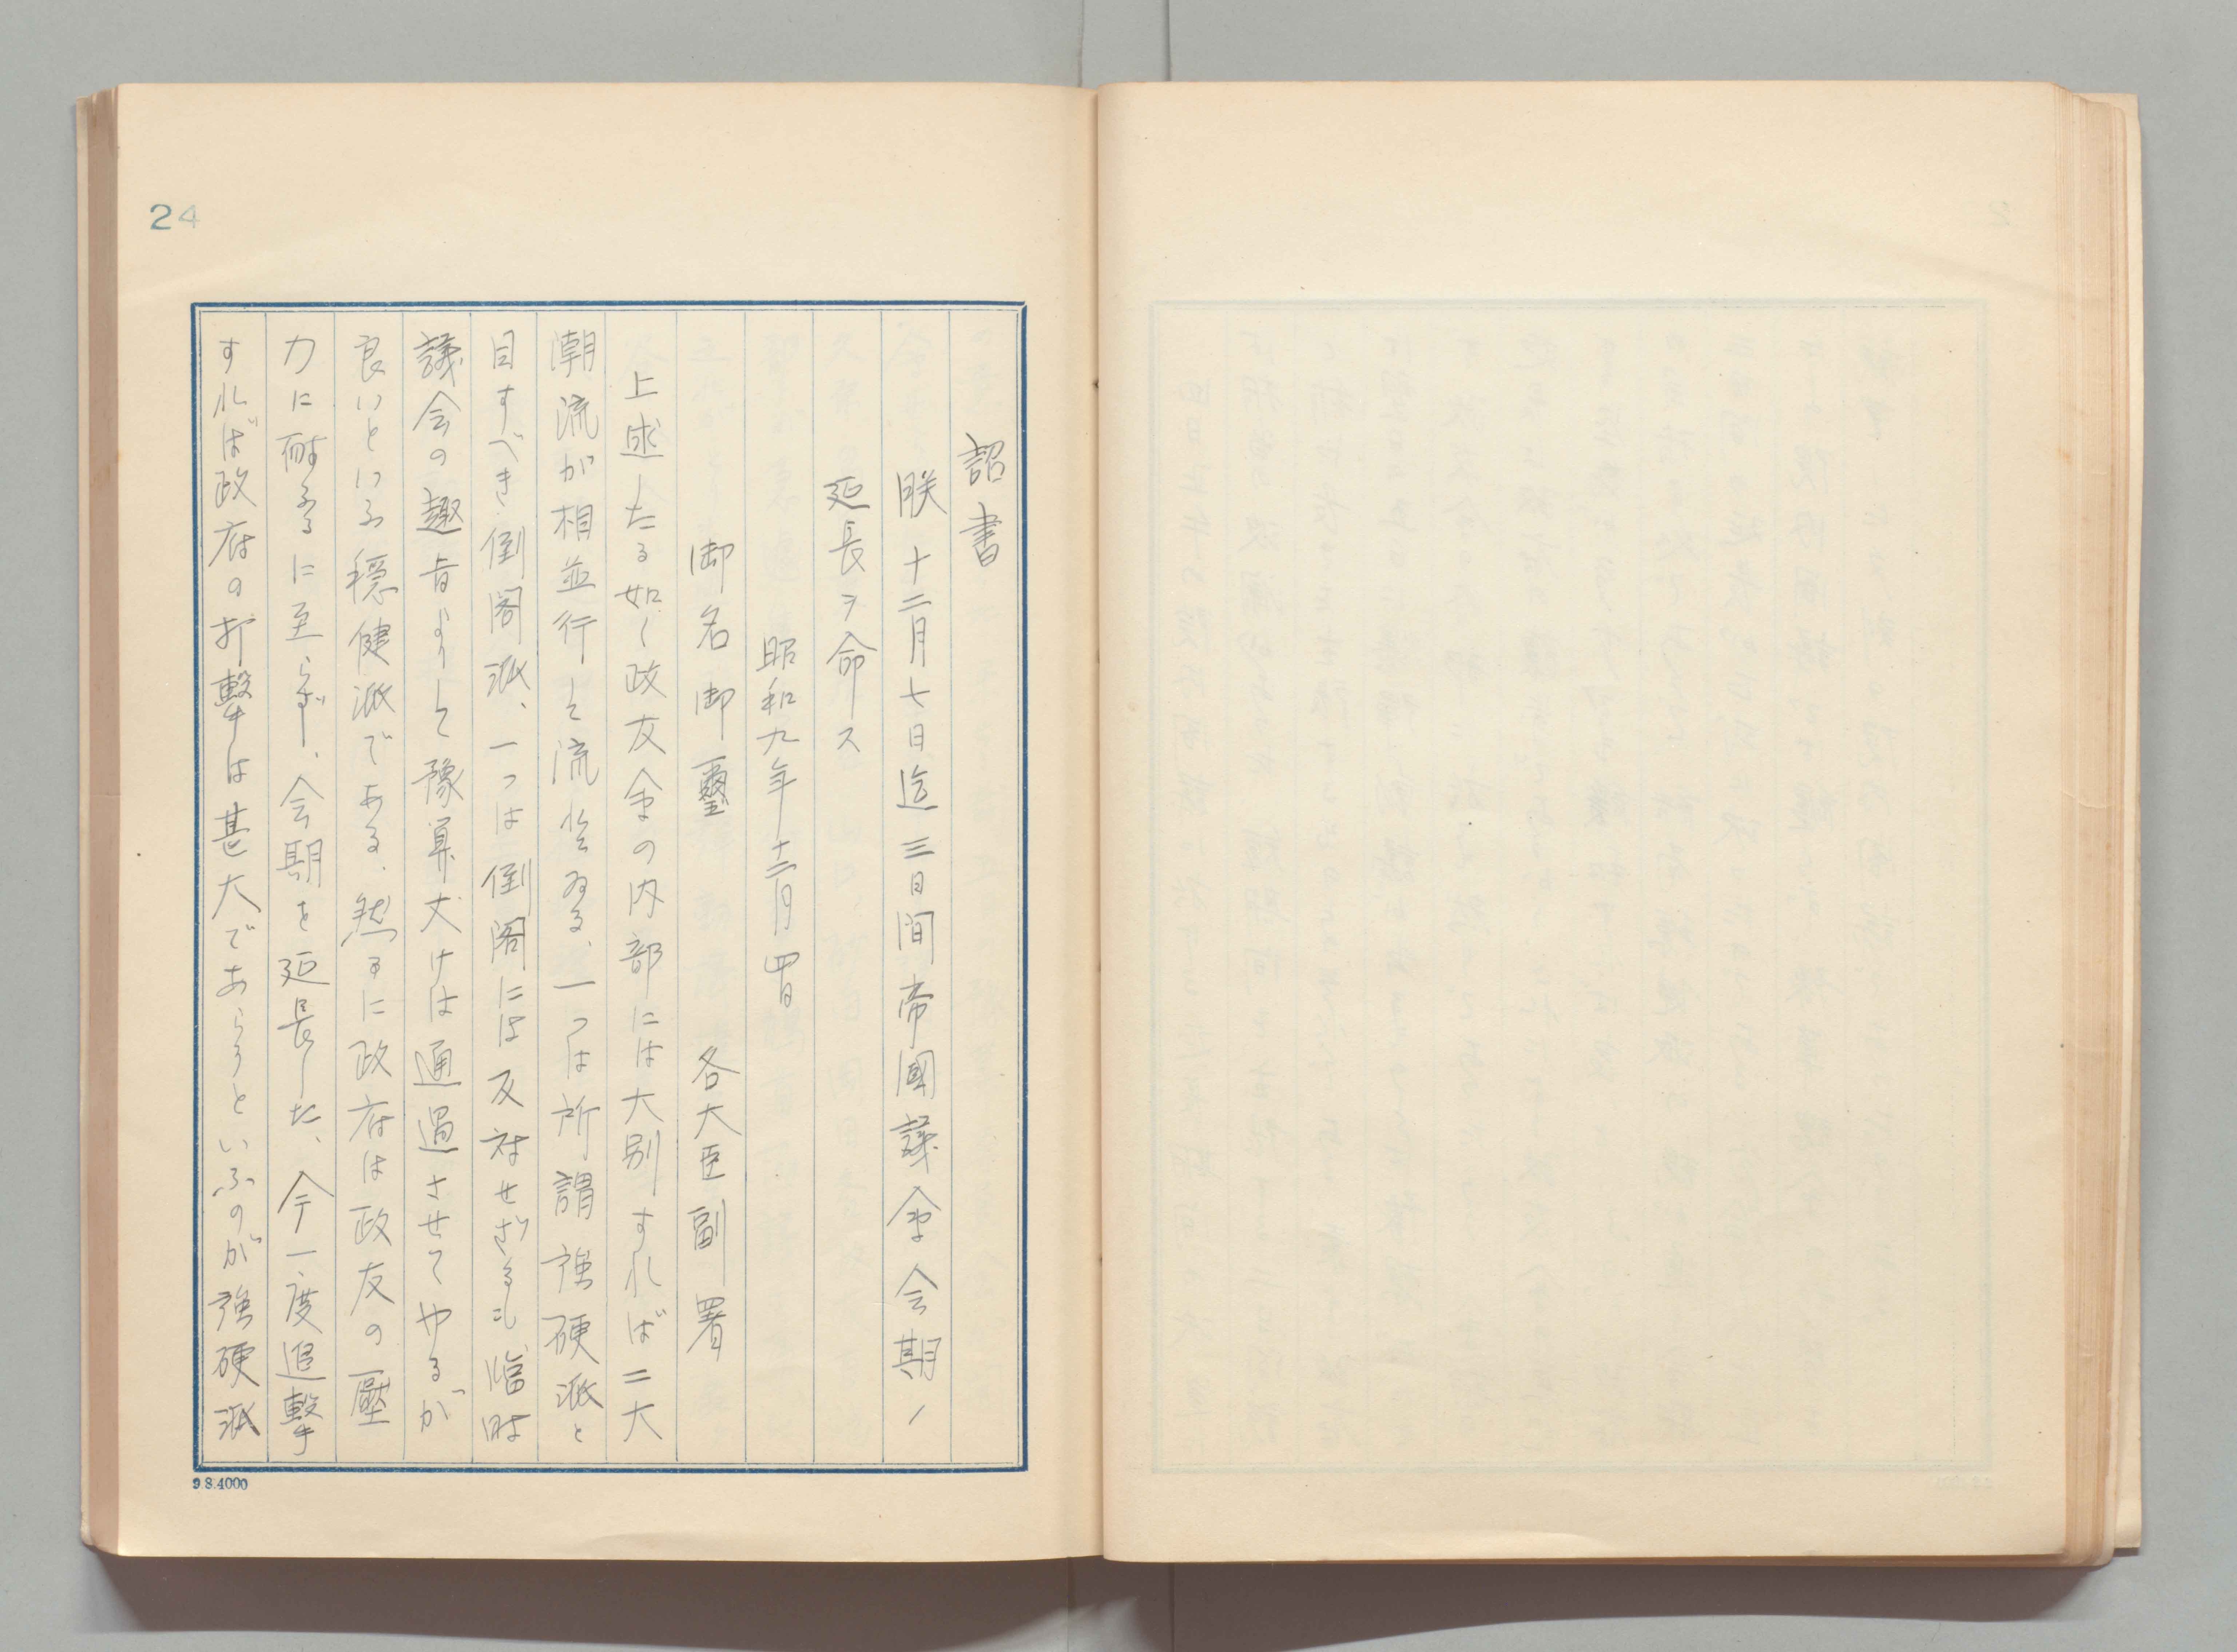 24
詔書
朕十二月七日迄三日間帝國議會会期ノ
延長ヲ命ス
昭和九年十二月四日
御名御璽　各大臣副署
上述したる如く政友會の内部には大別すれば二大
潮流が相並行して流れてゐる、一つは所謂強硬派と
目すべき倒閣派、一つは倒閣には反対せざるも臨時
議会の趣旨よりして豫算丈けは通過させてやるが
良いといふ穏健派である、然るに政府は政友の壓
力に耐ふるに至らずし、会期を延長した、今一度追撃
すれば政府の打撃は甚大であらうといふのが強硬派
9.8.4000